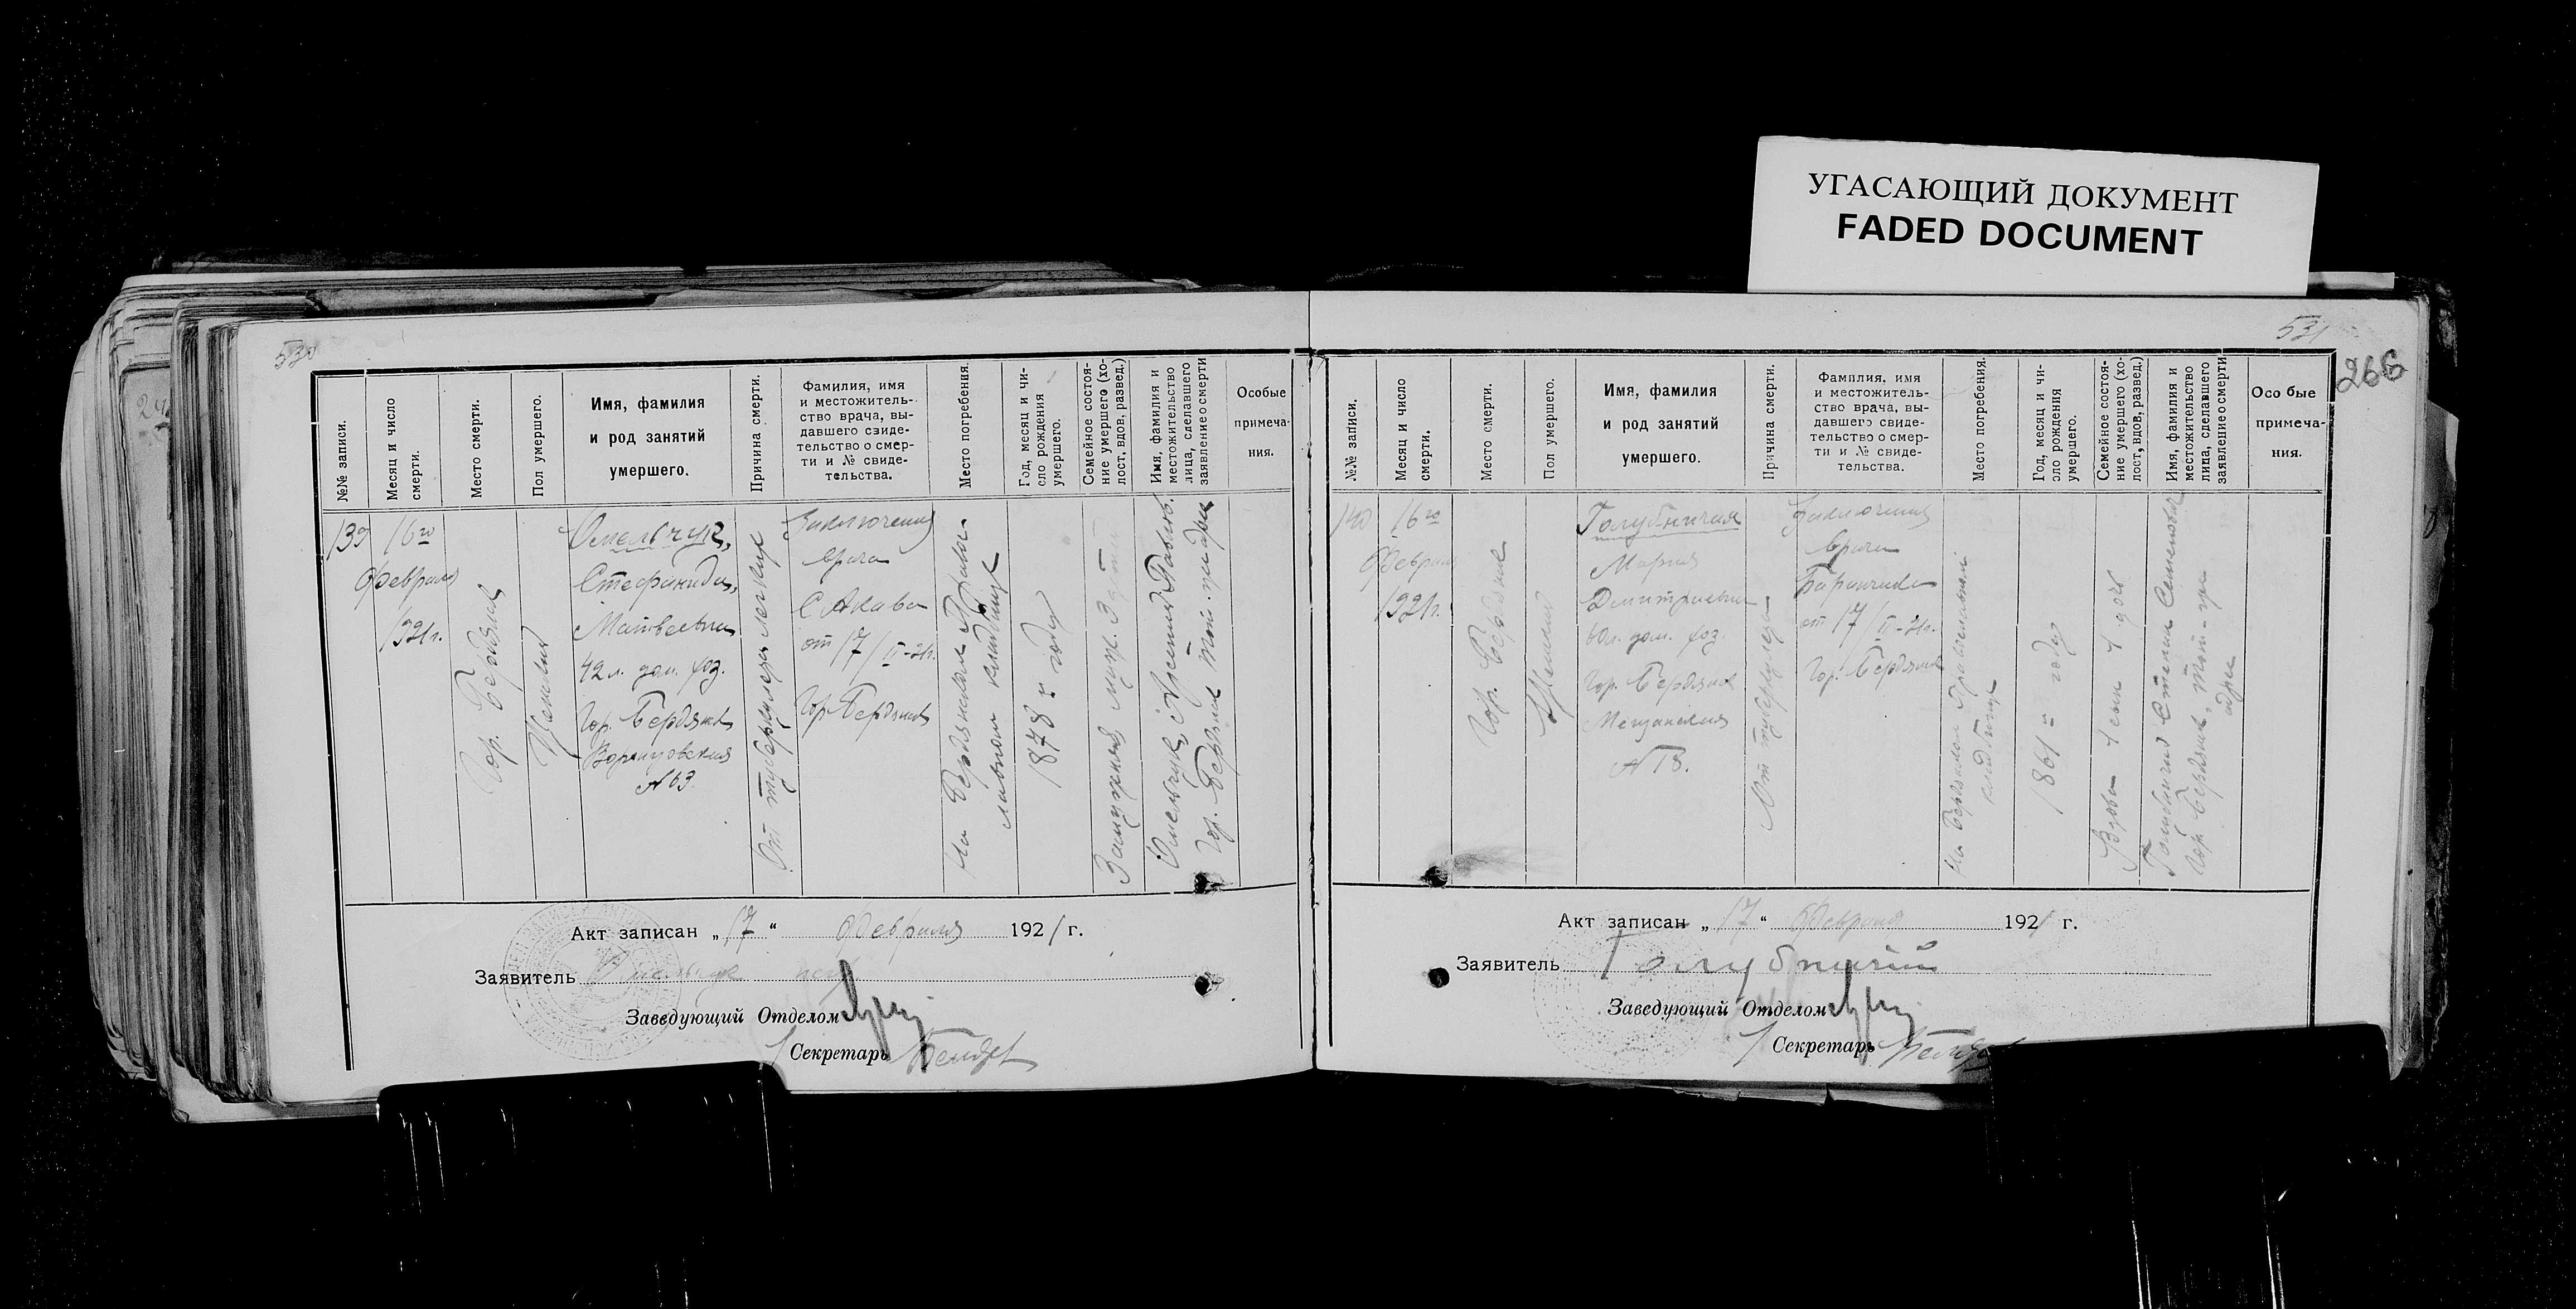 УГАСАЮЩИЙ ДОКУМЕНТ
FADED DOCUMENT
530
№№ записи.
Месяц и число
смерти.
Место смерти.
Пол умершего.
Имя, фамилия
и род занятий
умершего.
Причина смерти.
Фамилия, имя
и местожитель-
ство врача, вы-
давшего свиде-
тельство о смер-
ти и № свиде-
тельства.
Место погребения.
Год, месяц и чи-
сло рождения
умершего.
Семейное состоя-
ние умершего (хо-
лост, вдов, развед.)
Имя, фамилия и
местожительство
лица, сделавшего
заявление о смерти
Особые
примеча-
ния.
139
16го
февраля
1921г.
Гор. Бердянск
Женский
Омельчук,
Стефанида,
Матвеевна
42 л. дом. хоз.
Гор. Бердянск
№ 63
От туберкулеза легких
Заключение
врача
от 17/II-21г.
Гор. Бердянск
На Бердянском Право-
славном кладбище
1878 г. году
Замужняя, муж. 3 детей
Омельчук, Арсений Павлов.
Гор. Бердянск тот-же адрес
Акт записан „17“ февраля 1921 г.
Заявитель Омельчук
Заведующий Отделом
Секретарь
531
266
№№ записи.
Месяц и число
смерти.
Место смерти.
Пол умершего.
Имя, фамилия
и род занятий
умершего.
Причина смерти.
Фамилия, имя
и местожитель-
ство врача, вы-
давшего свиде-
тельство о смер-
ти и № свиде-
тельства.
Место погребения.
Год, месяц и чи-
сло рождения
умершего.
Семейное состоя-
ние умершего (хо-
лост, вдов, развед.)
Имя, фамилия и
местожительство
лица, сделавшего
заявление о смерти
Особые
примеча-
ния.
140
16го
февраля
1921г.
Гор. Бердянск
Женский
Голубничая
Мария
Дмитриевна
60 л. дом. хоз.
Гор. Бердянск
Мещанская
№ 18.
От туберкулеза
Заключение
врача
от 17/II-21г.
Гор. Бердянск
На Бердянском Православном
кладбище
1861 г. году
Вдова 1 сын 1 дочь
Голубничий Степан Семенович
Гор. Бердянск, тот-же
адрес
Акт записан „17“ февраля 1921 г.
Заявитель Голубничий
Заведующий Отделом
Секретарь